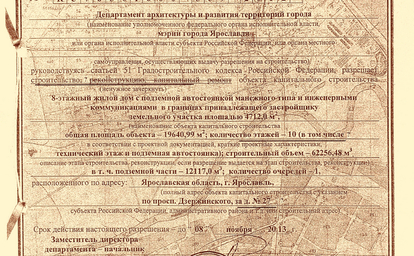 Департамент архитектуры и развития территорий города
(наименование уполномоченного федерального органа исполнительной власти,
мэрии города Ярославля
или органа исполнительной власти субъекта Российской Федерации, или органа местного
самоуправления, осуществляющих выдачу разрешения на строительство)
руководствуясь статьей 51 Градостроительного кодекса Российской Федерации, разрешает
строительство, реконструкцию, капитальный ремонт объекта капитального строительства
(ненужное зачеркнуть)
8-этажный жилой дом с подземной автостоянкой манежного типа и инженерными
коммуникациями в границах принадлежащего застройщику
земельного участка площадью 4712,0 м²
(наименование объекта капитального строительства
общая площадь объекта – 19640,99 м²; количество этажей – 10 (в том числе
в соответствии с проектной документацией, краткие проектные характеристики,
технический этаж и подземная автостоянка); строительный объем – 62256,48 м³
описание этапа строительства, реконструкции, если разрешение выдается на этап строительства, реконструкции)
в т. ч. подземной части – 12117,0 м³; количество очередей – 1.
расположенного по адресу Ярославская область, г. Ярославль,
(полный адрес объекта капитального строительства с указанием
по просп. Дзержинского, за д. № 27
субъекта Российской Федерации, административного района и т.д. или строительный адрес)
Срок действия настоящего разрешения – до 08 ноября 2013
Заместитель директора
департамента – начальник